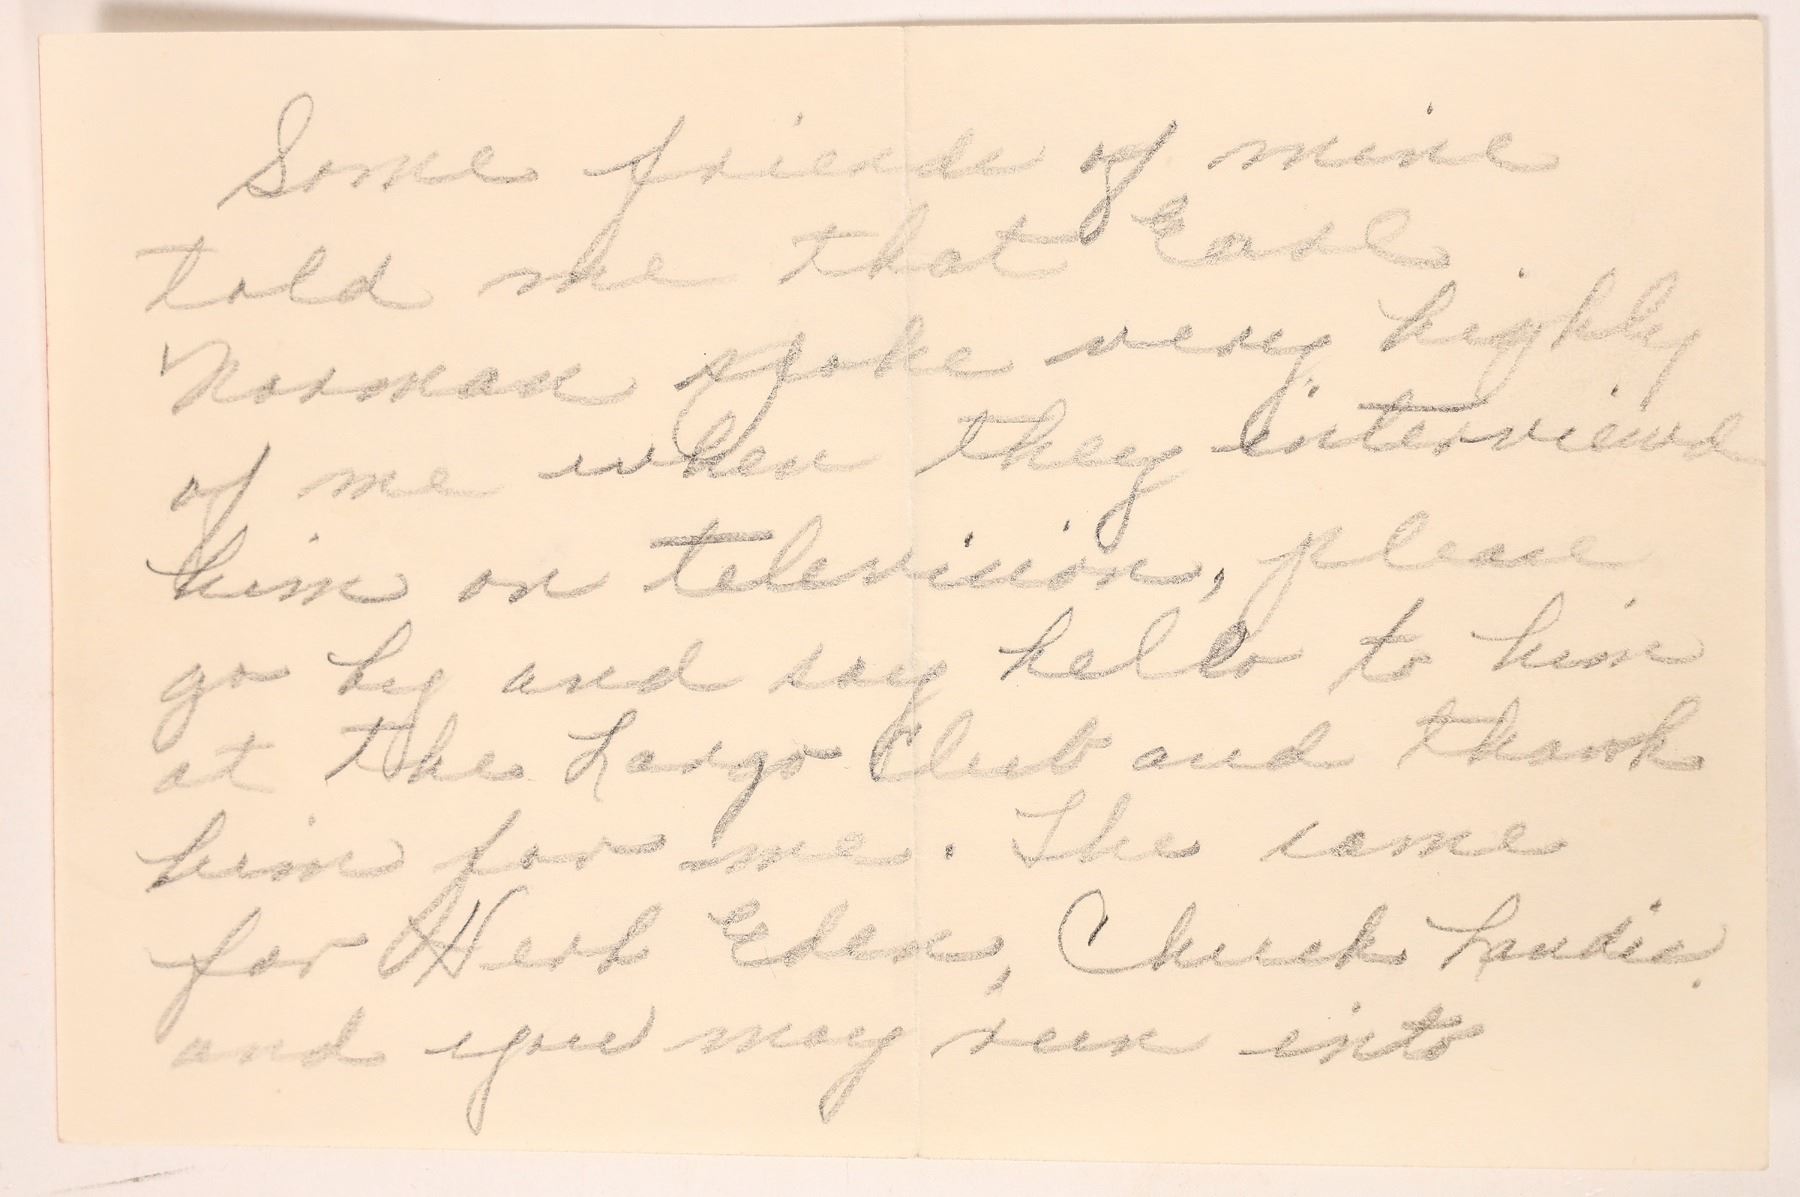 Some friends of mine
told me that Earl
Norman spoke very highly
of me when they interviewd
him on television, please
go by and say hello to him
at the Largo Club and thank
him for me. The same
for Herb Eden, Chuck Landis.
and you may run into